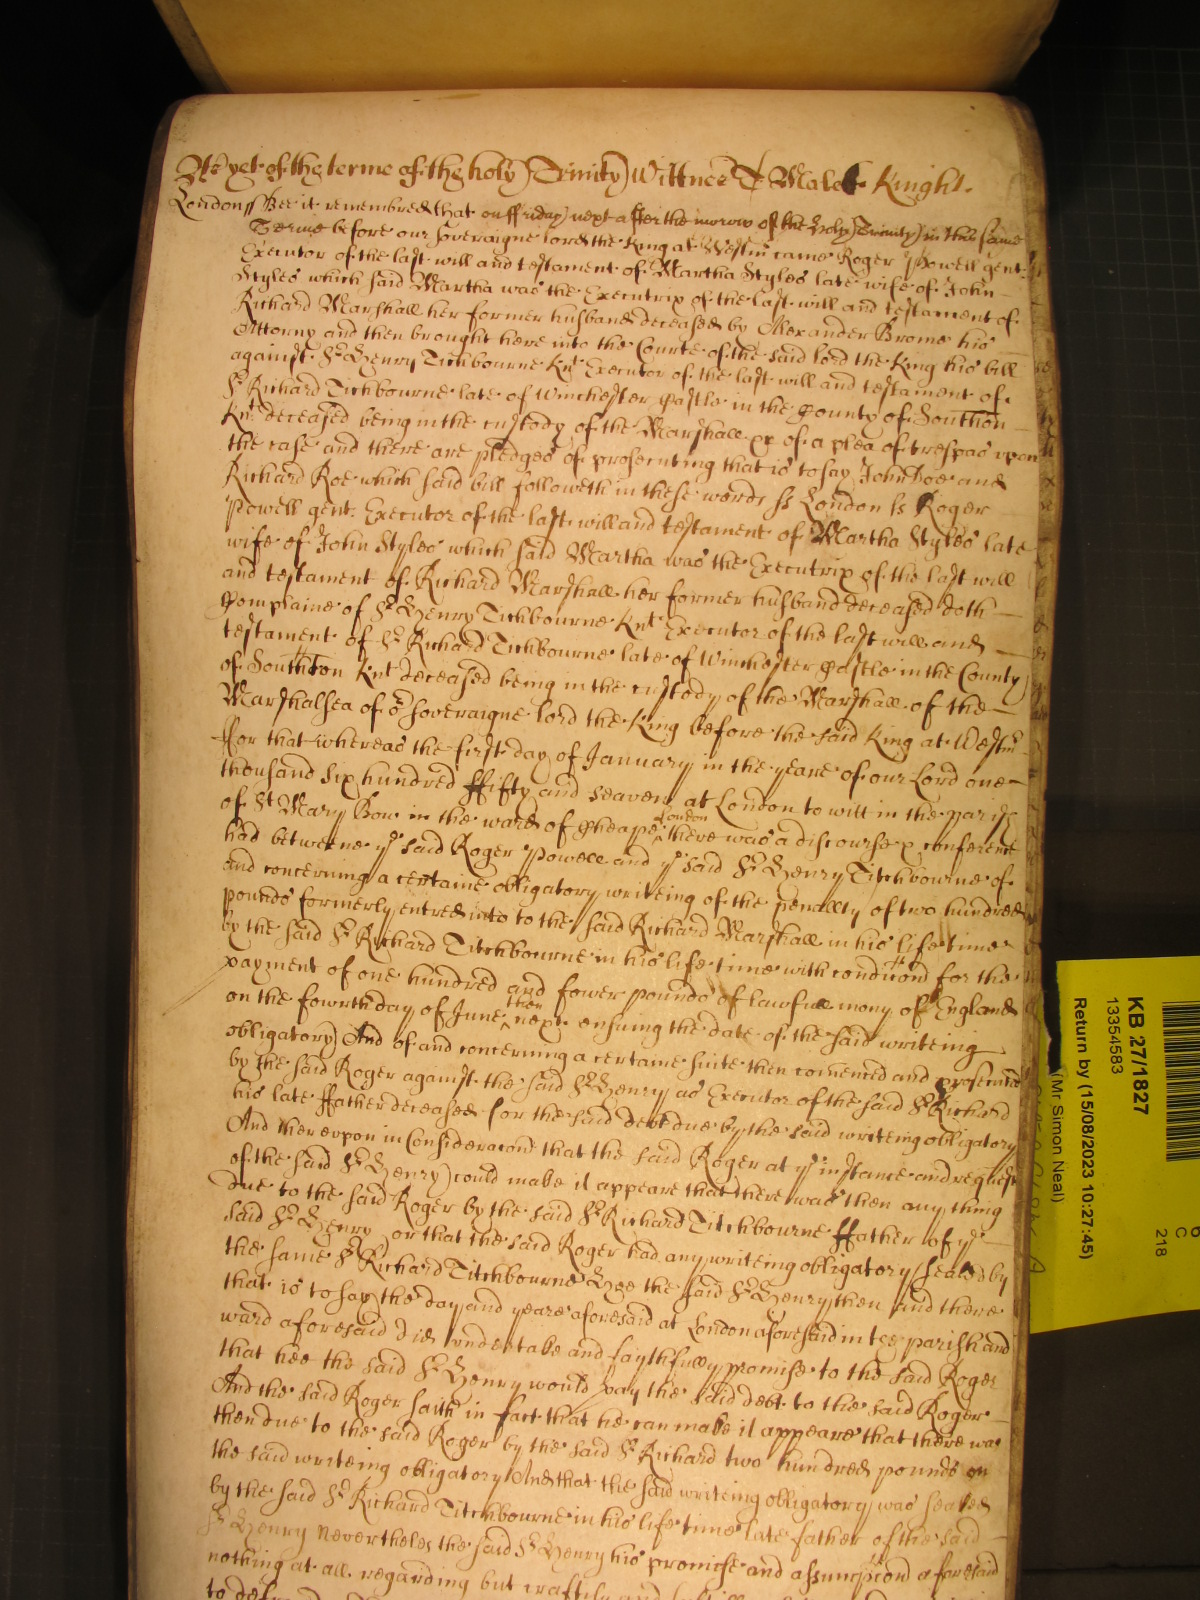 As yet of the terme of the holy Trinity Wittnes T Malet Knight.
London ss Bee it remembred that on ffriday next after the morrow of the Holy Trinity in this same
Terme before our soveraigne lord the King at Westm came Roger Powell gent
Executor of the last will and testament of Martha Styles late wife of John
Styles which said Martha was the Executrix of the last will and testament of
Richard Marshall her former husband deceased by Alexander Brome his
Attorny and then brought here into the Courte of the said lord the King his bill
against Sr Henry Titchbourne Knt Executor of the last will and testament of
Sr Richard Titchbourne late of Winchester Castle in the County of Southton
Knt deceased being in the custody of the Marshall &c of a plea of trespas upon
the case and there are pledges of prosecuting that is to say John Doe and
Richard Roe which said bill followeth in these words ss London ss Roger
Powell gent. Executor of the last will and testament of Martha Styles late
wife of John Styles which said Martha was the Executrix of the last will
and testament of Richard Marshall her former husband deceased doth
Complaine of Sr Henry Titchbourne Knt Executor of the last will and
testament of Sr Richard Titchbourne late of Winchester Castle in the County
of Southton Knt deceased being in the custody of the Marshall of the
Marshalsea of or soveraigne lord the King before the said King at Westm
ffor that whereas the first day of January in the yeare of our Lord one
thousand six hundred ffifty and seaven at London to witt in the parish
of St Mary Bow in the ward of Cheape London there was a discourse & conference
had betweene ye said Roger Powell and ye said Sr Henry Titchbourne of
and concerning a certaine obligatory writeing of the penallty of two hundred
pounds formerly entred into to the said Richard Marshall in his life time
by the said Sr Richard Titchbourne in his life time with condicond for the
payment of one hundred and fower pounds of lawfull mony of England
on the fowrth day of June then next ensuing the date of the said writeing
obligatory And of and concerning a certaine suite then comenced and prosecuted
by the said Roger against the said Sr Henry as Executor of the said Sr Richard
his late ffather deceased for the said debt due by the said writeing obligatory
And thereupon in Consideracond that the said Roger at ye instance and request
of the said Sr Henry could make it appeare that there was then any thing
due to the said Roger by the said Sr Richard Titchbourne ffather of ye
said Sr Henry or that the said Roger had any writeing obligatory sealed by
the same Sr Richard Titchbourne Hee the said Sr Henry then and there
that is to say the day and yeare aforesaid at London aforesaid in the parish and
ward aforesaid did undertake and faythfully promise to the said Roger
that hee the said Sr Henry would pay the said debt to the said Roger
And the said Roger saith in fact that he can make it appeare that there was
then due to the said Roger by the said Sr Richard two hundred pounds on
the said writeing obligatory And that the said writeing obligatory was sealed
by the said Sr Richard Titchbourne in his life time late father of the said
Sr Henry Nevertheles the said Sr Henry his promise and assumpcond aforesaid
nothing at all regarding but craftily and
to
KB 27/1827
13354583
Return by (15/08/2023 10:27:45)
(Mr Simon Neal)
218